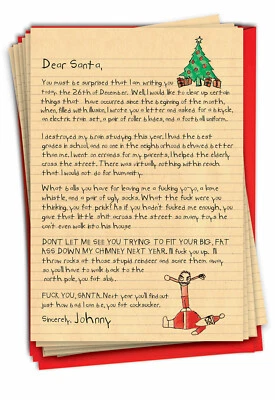 Dear Santa,
You must be surprised that I am writing you
today, the 26th of December. Well, I would like to clear up certain
things that have occurred since the beginning of the month,
when, filled with illusion, I wrote you a letter and asked for a bicycle,
an electric train set, a pair of roller blades, and a football uniform.
I destroyed my brain studying this year. I had the best
grades in school, and no one in the neighborhood behaved better
than me. I went on errands for my parents, I helped the elderly
cross the street. There was virtually nothing within reach
that I would not do for humanity.
What balls you have for leaving me a fucking yo-yo, a lame
whistle, and a pair of ugly socks. What the fuck were you
thinking, you fat prick? As if you hadn't fucked me enough, you
gave that little shit across the street so many toys he
can't even walk into his house.
DON'T LET ME SEE YOU TRYING TO FIT YOUR BIG, FAT
ASS DOWN MY CHIMNEY NEXT YEAR. I'll fuck you up. I'll
throw rocks at those stupid reindeer and scare them away,
so you'll have to walk back to the
north pole, you fat shit.
FUCK YOU, SANTA. Next year you'll find out
just how bad I can be, you fat cocksucker.
Sincerely, Johnny